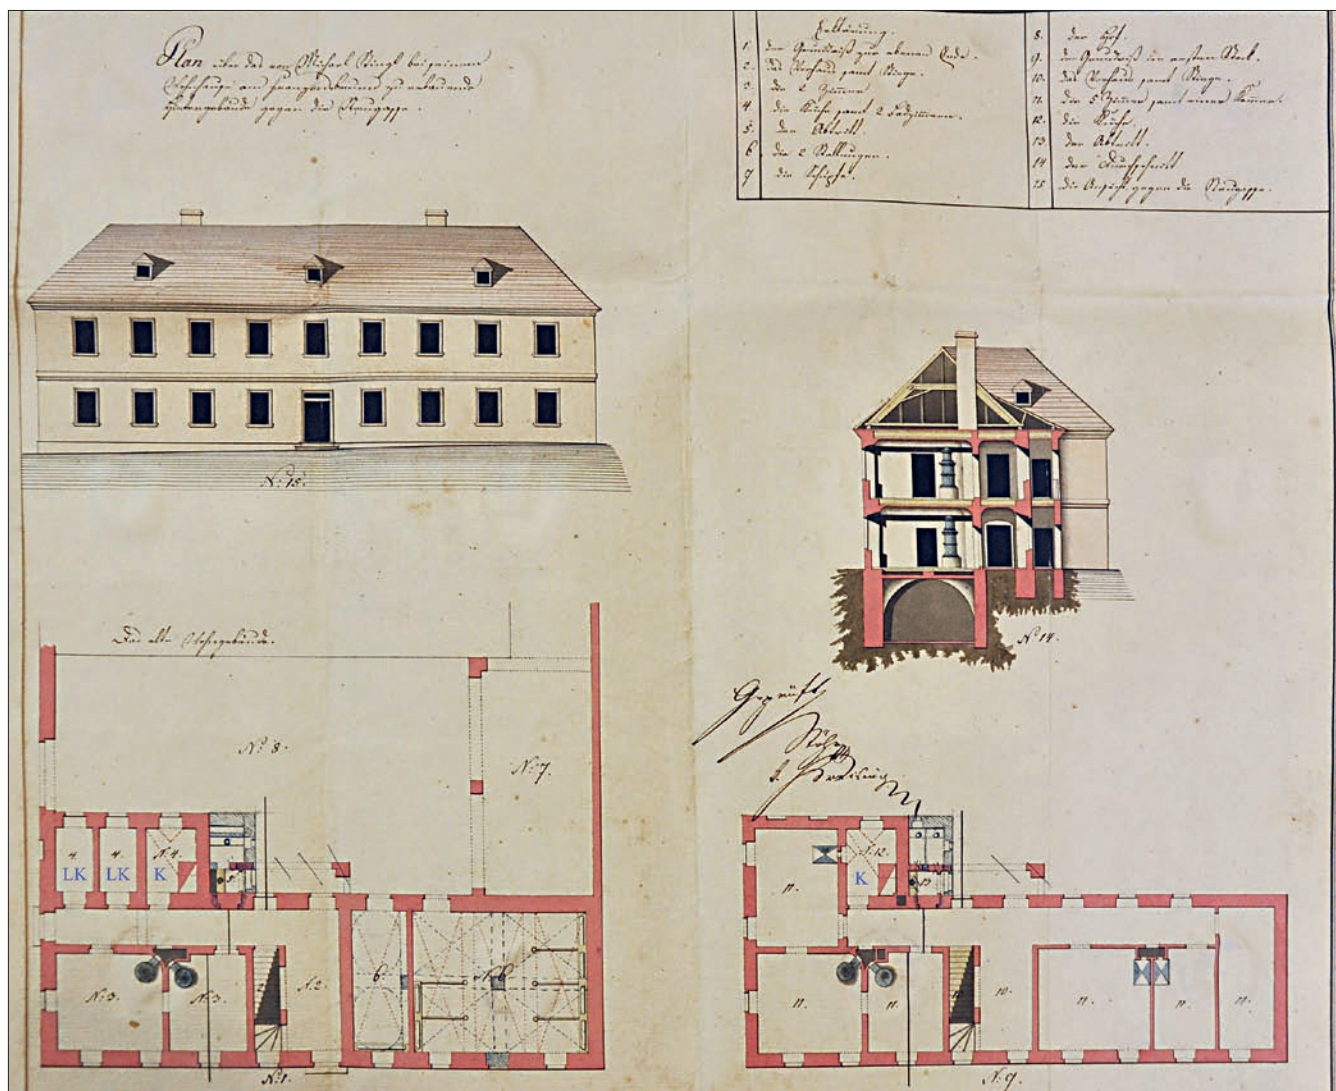 Plan über das von Michael Stingl bei seinem
Wohnhause am Franzensbrunn zu erbauende
Hintergebäude gegen die Neugasse.
Erklärung.
1. der Grundriß zur ebenen Erde.
2. das Vorhaus samt Stiege.
3. die 2 Zimmer
4. die Küche samt 2 Badzimmern.
5. der Abtritt.
6. die 2 Stallungen.
7. die Schupfe.
8. der Hof.
9. der Grundriß im ersten Stock.
10. das Vorhaus samt Stiege.
11. die 5 Zimmer samt einer Kammer.
12. die Küche.
13. der Abtritt.
14. der Durchschnitt
15. die Ansicht gegen die Neugasse.
No: 15.
No 14.
Das alte Wohngebäude.
No 8.
No 7.
Geprüft
4.
4.
No 4.
LK
LK
K
5.
No 3.
No 3.
No 2.
6.
No 6.
No 1.
11.
No 12.
K
13
11.
11.
10.
11.
11.
11.
No 9.